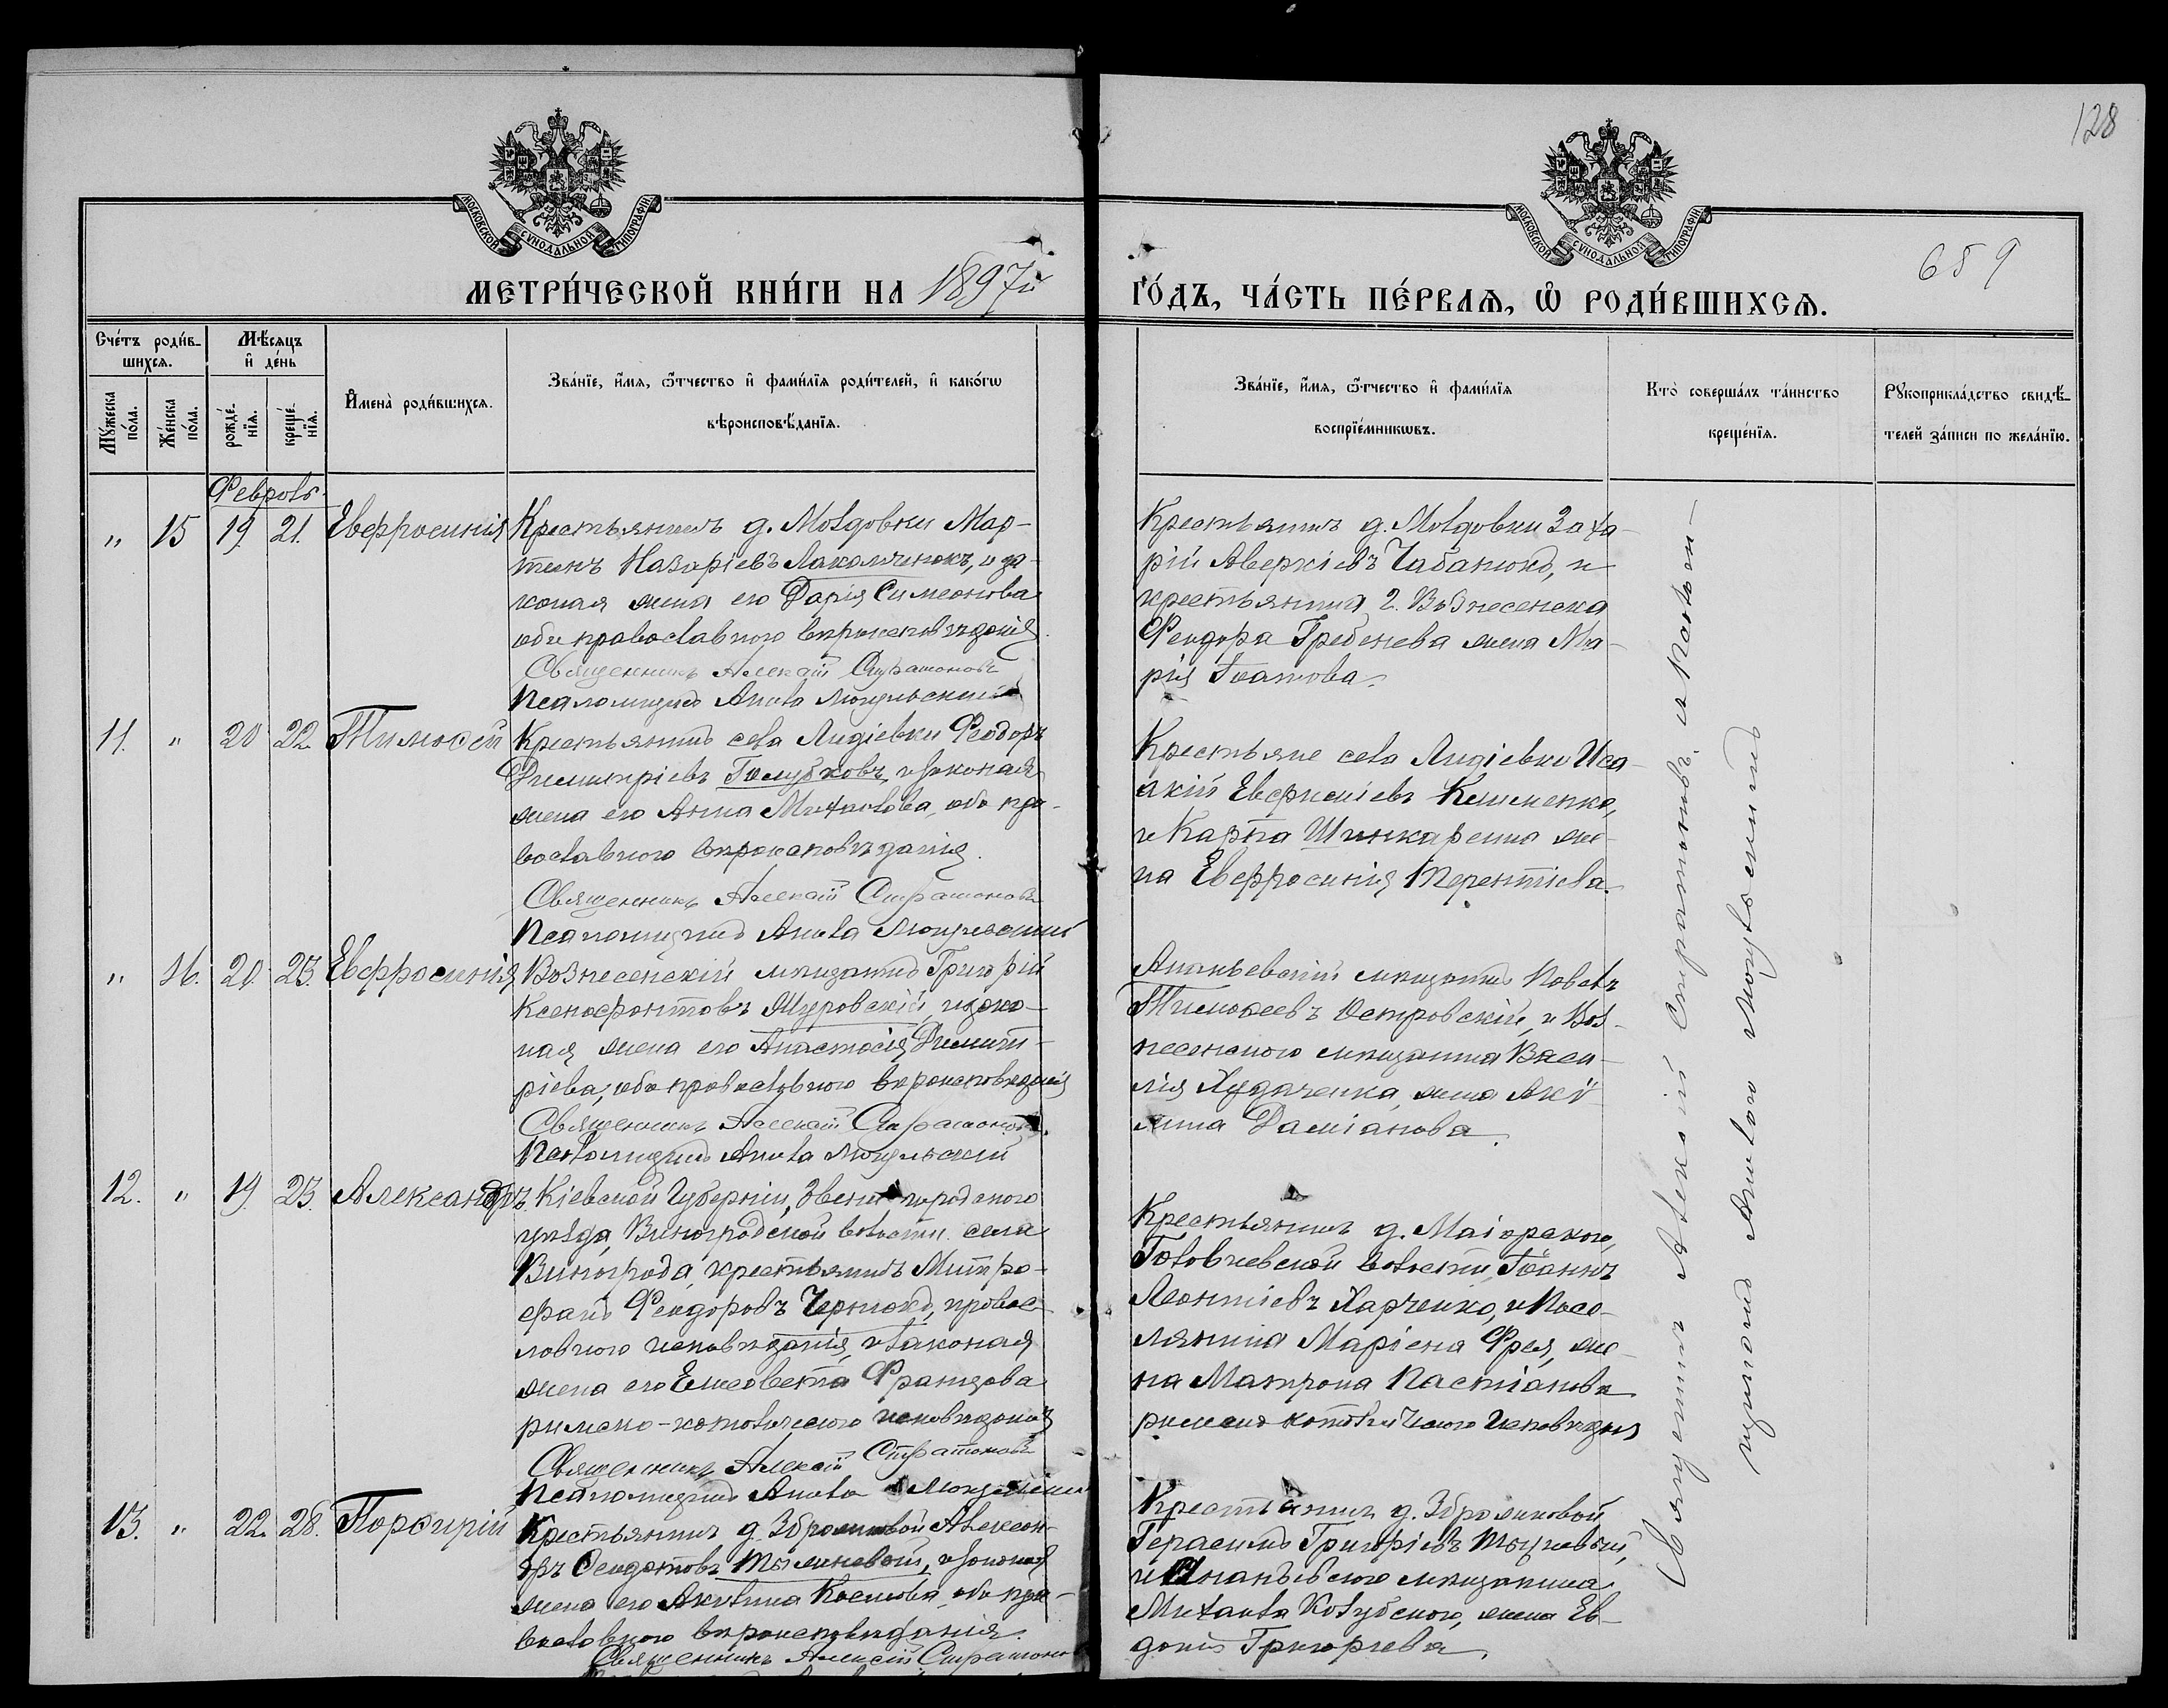 128
МОСКОВСКОЙ СУНОДАЛЬНОЙ ТИПОГРАФІИ
МОСКОВСКОЙ СУНОДАЛЬНОЙ ТИПОГРАФІИ
659
МЕТРИ́ЧЕСКОЙ КНИ́ГИ НА 1897й
ГО́ДЪ, ЧА́СТЬ ПЕ́РВАѦ, Ѿ РОДИ́ВШИХСѦ.
Сче́тъ роди́в-
шихсѧ.
Мѣ́сѧцъ
и де́нь
Мꙋ́жеска
по́ла.
Же́нска
по́ла.
рожде́-
нїѧ.
креще́-
нїѧ.
Имена̀ роди́вшихсѧ.
Зва́нїе, и́мѧ, ѻ́тчество и фами́лїѧ роди́телей, и како́гѡ
вѣроисповѣ́данїѧ.
Зва́нїе, и́мѧ, ѻ́тчество и фами́лїѧ
воспрїе́мникѡвъ.
Кто̀ соверша́лъ та́инство
креще́нїѧ.
Рꙋкоприкла́дство свидѣ́-
телей за́писи по жела́нїю.
Февраль
" 15 19. 21. Евфросинія
Крестьянинъ д. Молдовки Мар-
тинъ Назаріевъ Лакомчинюкъ, и за-
коная жена его Дарія Симеонова
оби православного вѣроисповѣданія.
Священникъ Алексій Стратоновъ
Псаломщикъ Могульскій
Крестьянинъ д. Молдовки Заха-
рій Аверкіевъ Чабанюкъ, и
крестьянина г. Вознесенска
Феодора Гребенева жена Ма-
рія Іванова.
11. " 20 22. Тимоѳей
Крестьянинъ села Лидіевки Феодоръ
Димитріевъ Голубковъ, и законая
жена его Анна Михаилова, оба пра-
вославного вѣроисповѣданія.
Священникъ Алексій Стратоновъ
Псаломщикъ Могульскій
Крестьяне села Лидіевки Иса-
акій Евфиміевъ Клименко,
и Карпа Шинкаренка же-
на Евфросинія Терентіева.
" 16. 20. 23. Евфросинія
Вознесенскій мѣщанинъ Григорій
Ксенофонтовъ Муровскій, и зако-
ная жена его Анастасія Димит-
ріева, оба православного вѣроисповѣданія
Священникъ Алексій Стратоновъ.
Псаломщикъ Могульскій
Ананьевскій мѣщанинъ Павелъ
Тимоѳеевъ Островскій, и Воз-
несенского мѣщанина Васи-
лія Худаченка, жена Аку-
лина Даміанова.
12. " 19. 23. Александръ
Кіевской Губерніи, Звенигородского
уѣзда, Виноградской волости, села
Винограда, крестьянинъ Митро-
фанъ Феодоровъ Чернюкъ, правос-
лавного исповѣданія, и законая
жена его Елисавета Францова
римско-католического исповѣданія
Священникъ Алексій Стратоновъ
Псаломщикъ Могульскій
Крестьянинъ д. Маіорского,
Головчевской волости, Іоаннъ
Леонтіевъ Харченко, и посе-
лянина Маріена Фрея, же-
на Матрона Кастіанова
римско католического исповѣдня
13. " 22. 28. Порфирій
Крестьянинъ д. Зброшковой Алексан-
дръ Феодотовъ Тышневый, и законая
жена его Акилина Косьмова, оба пра-
вославного вѣроисповѣданія.
Священникъ Алексій Стратоновъ
Крестьянинъ д. Зброшковой
Герасимъ Григоріевъ Тышневый,
и Ананьевского мѣщанина
Михаила Колубского, жена Ев-
докія Григорьева.
Священникъ Алексій Стратоновъ и Псалом-
щикъ Могульскій